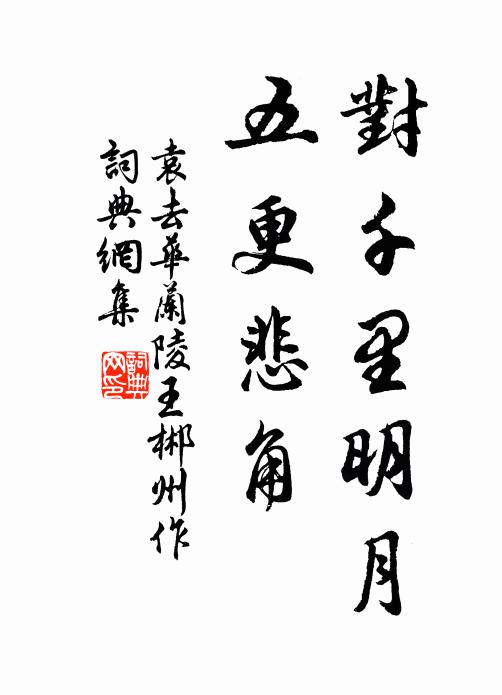 對千里明月
五更悲角
袁去華蘭陵王郴州作
詞典網集
詞典网印